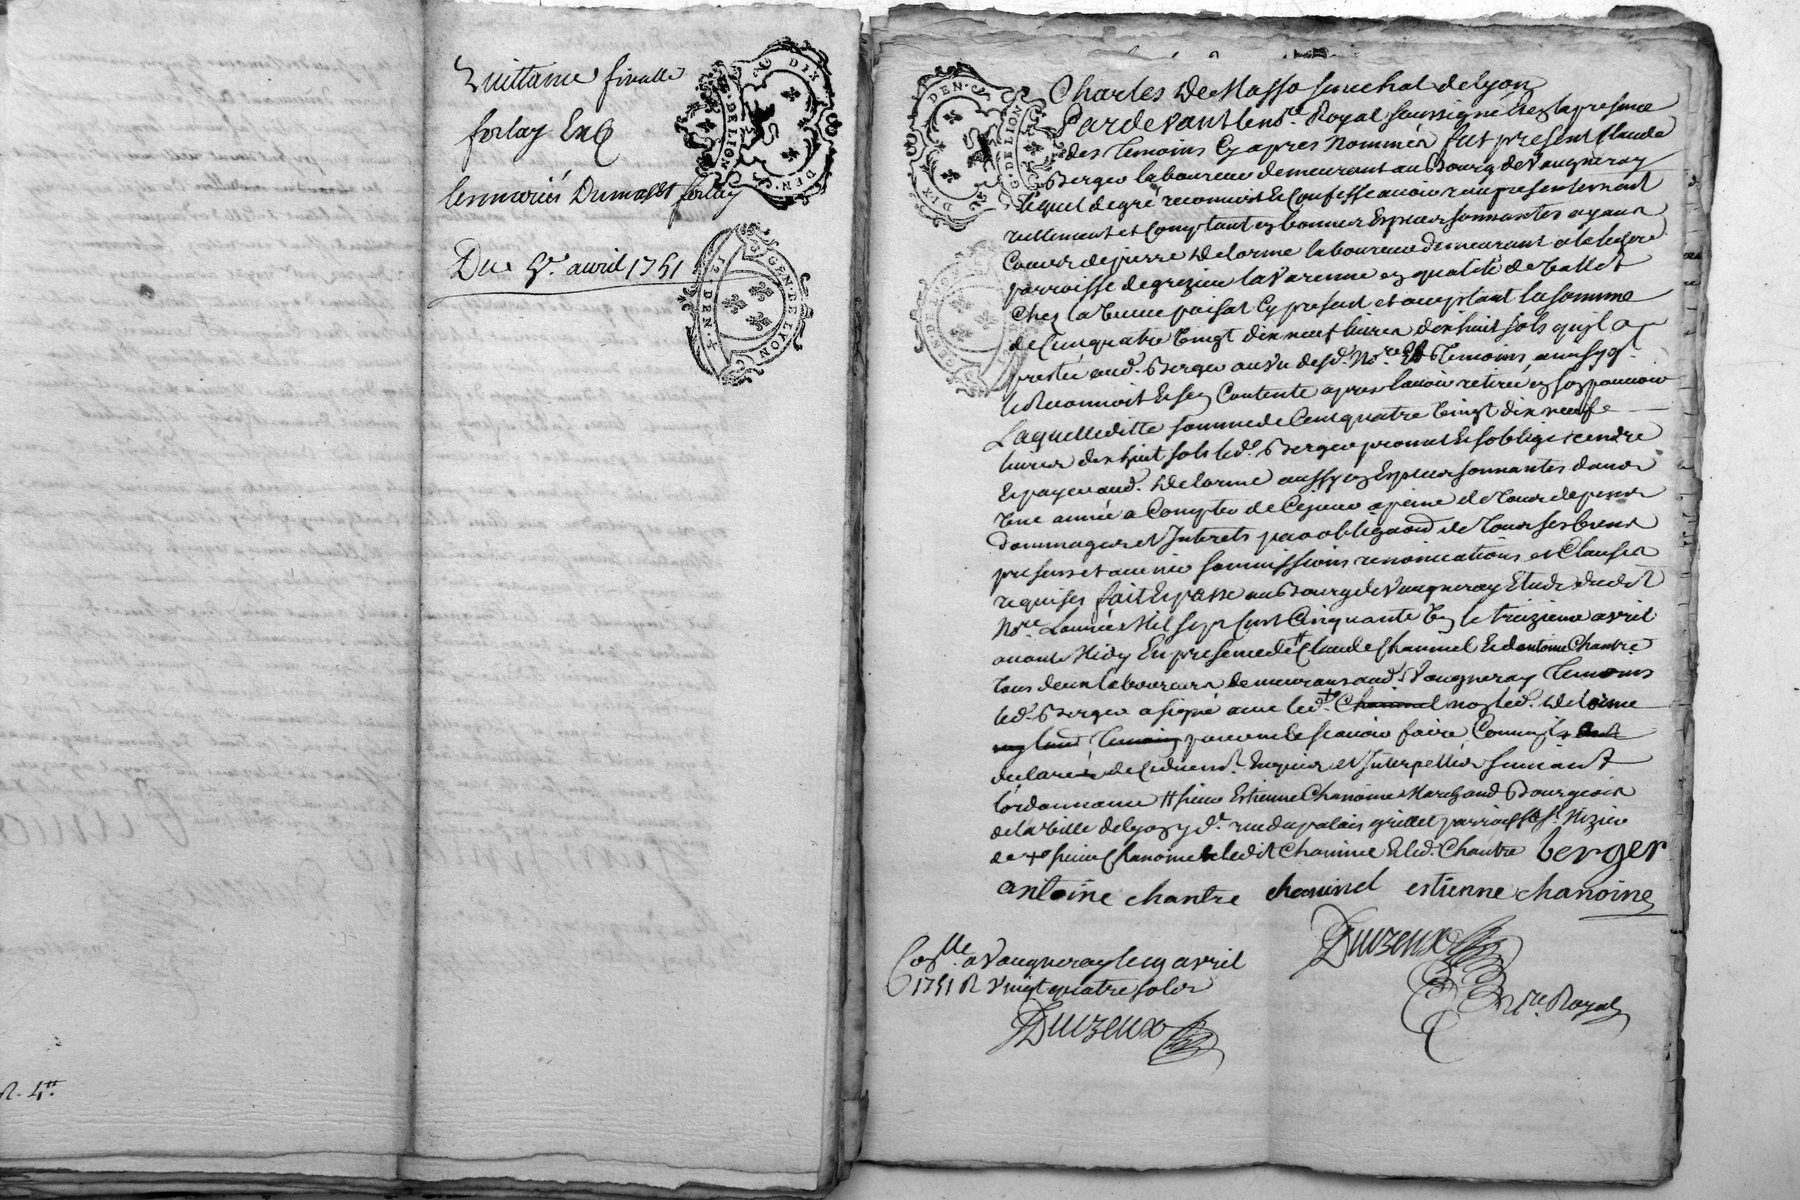 Quittance finalle
forlay Et
les mariés Dumas et forlay
Du 5e. avril 1751
R. 4tt.
DIX DEN. G. DE LION
GEN. DE LYON 12 DEN.
DIX DEN. G. DE LION
GEN. DE LION
Charles De Masso senechal de lyon
Pardevant le no.re Royal soussigné Et en la presence
des temoins Cy apres nommés fut present Claude
Berger laboureur demeurant au Bourg de Vaugneray
lequel de gré reconnoit Et Confesse avoir reçu presentement
reellement et Comptant en bonnes Especes sonnantes ayant
Cours de pierre Delorme laboureur demeurant
parroisse de grezieu la Varenne en qualité de Vallet
Chez la Veuve poisat Cy present et acceptant la somme
de Cent quatre Vingt dix neuf livres dix huit sols qu'il a
presté aud. Berger au vu desd. no.re Et temoins ainsy qu'il
le Reconnoit Et s'en Contente apres l'avoir retiré en son pouvoir
Laquelle ditte somme de Cent quatre Vingt dix neuf
livres dix huit sols led. Berger promet Et s'oblige rendre
Et payer aud. Delorme aussy en Especes sonnantes dans
Une année a Compter de Ce jour a peine de tous depens
dommages et Interets par obligaon de tous ses biens
presents et avenir soumissions renonciations et Clauses
requises fait Et passé au Bourg de Vaugneray Etude dudit
No.re L'année Mil sept Cent Cinquante Un le treizieme avril
avant Midy En presence de # Claude Chaminel Et d'antoine Chantre
tous deux laboureurs demeurants aud. Vaugneray temoins
led. Berger a signé avec led. + Chaminel non led. Delorme
temoin pour ne le scavoir faire Comme il
declaré de Ce duement Enquis et Interpellé suivant
l'ordonnance # sieur Estienne Chanoine Marchand Bourgeois
de la Ville de lyon y dt. rue du palais grillet parroisse St. Nizier
et + sieur Chanoine ledit Chaminel Et led. Chantre berger
antoine chantre chaminel estienne chanoine
Duizeux
no.re Royal
Co.lle a Vaugneray le 19 avril
1751 R Vingt quatre sols
Duizeux